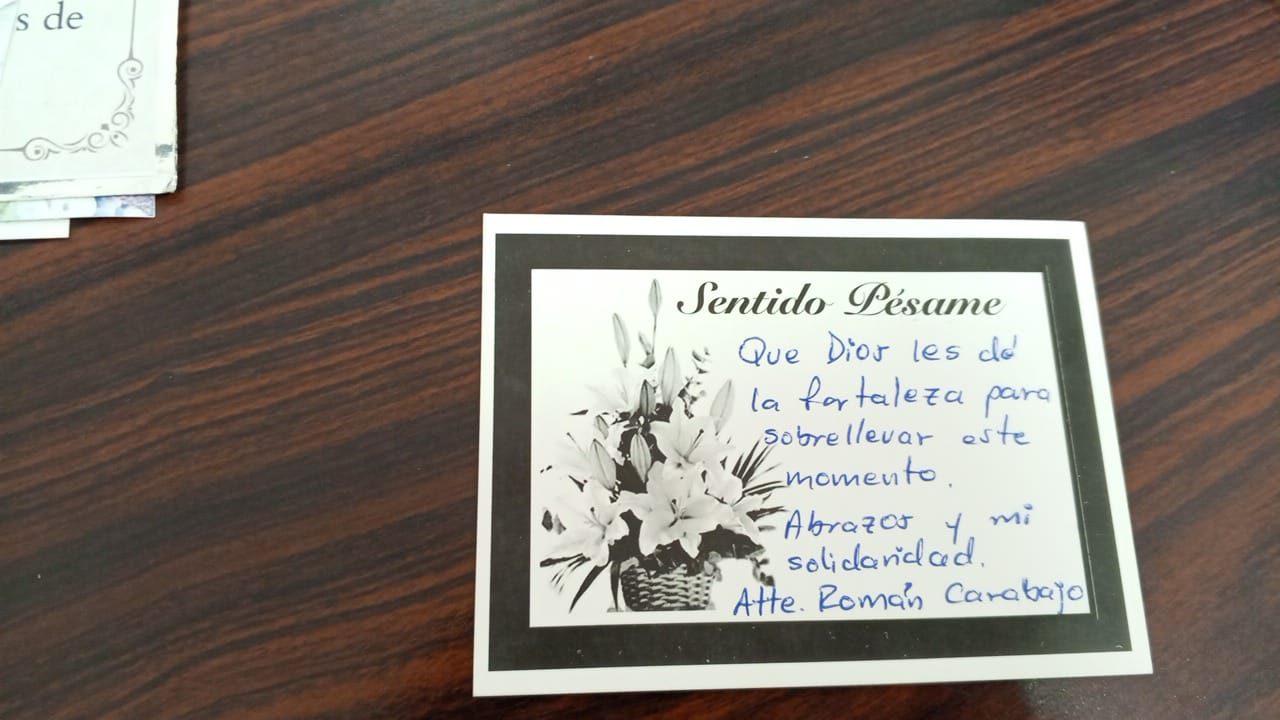 s de
Sentido Pésame
Que Dios les dé
la fortaleza para
sobrellevar este
momento.
Abrazos y mi
solidaridad.
Atte. Román Carabajo